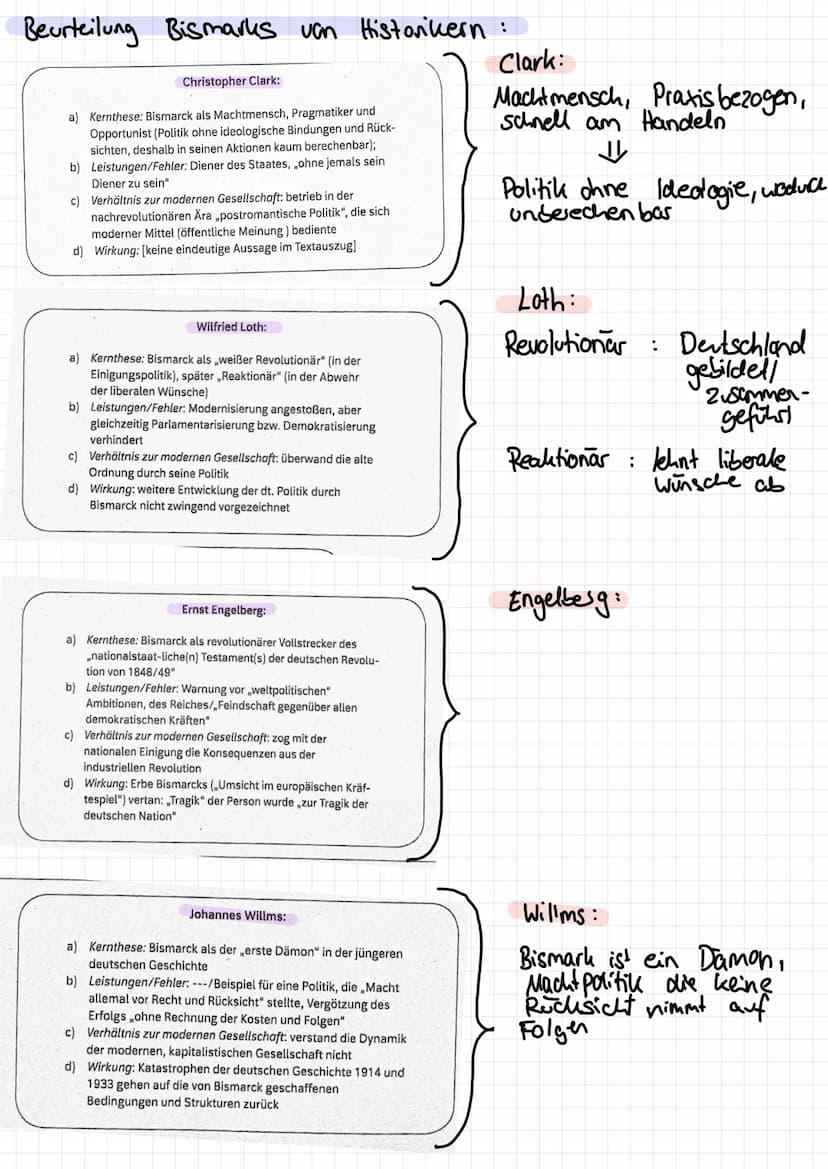 Beurteilung Bismarks von Historikern :
Christopher Clark:
a) Kernthese: Bismarck als Machtmensch, Pragmatiker und
Opportunist (Politik ohne ideologische Bindungen und Rück-
sichten, deshalb in seinen Aktionen kaum berechenbar);
b) Leistungen/Fehler: Diener des Staates, „ohne jemals sein
Diener zu sein"
c) Verhältnis zur modernen Gesellschaft: betrieb in der
nachrevolutionären Ära „postromantische Politik", die sich
moderner Mittel (öffentliche Meinung ) bediente
d) Wirkung: [keine eindeutige Aussage im Textauszug]
Clark:
Machtmensch, Praxisbezogen,
schnell am Handeln
⇓
Politik ohne Ideologie, wodurch
unberechenbar
Wilfried Loth:
a) Kernthese: Bismarck als „weißer Revolutionär" (in der
Einigungspolitik), später „Reaktionär" (in der Abwehr
der liberalen Wünsche)
b) Leistungen/Fehler: Modernisierung angestoßen, aber
gleichzeitig Parlamentarisierung bzw. Demokratisierung
verhindert
c) Verhältnis zur modernen Gesellschaft: überwand die alte
Ordnung durch seine Politik
d) Wirkung: weitere Entwicklung der dt. Politik durch
Bismarck nicht zwingend vorgezeichnet
Loth:
Revolutionär : Deutschland
gebildet/
zusammen-
geführt
Reaktionär : lehnt liberale
Wünsche ab
Ernst Engelberg:
a) Kernthese: Bismarck als revolutionärer Vollstrecker des
„nationalstaat-liche(n) Testament(s) der deutschen Revolu-
tion von 1848/49"
b) Leistungen/Fehler: Warnung vor „weltpolitischen"
Ambitionen, des Reiches/„Feindschaft gegenüber allen
demokratischen Kräften"
c) Verhältnis zur modernen Gesellschaft: zog mit der
nationalen Einigung die Konsequenzen aus der
industriellen Revolution
d) Wirkung: Erbe Bismarcks („Umsicht im europäischen Kräf-
tespiel") vertan: „Tragik" der Person wurde „zur Tragik der
deutschen Nation"
Engelberg:
Johannes Willms:
a) Kernthese: Bismarck als der „erste Dämon" in der jüngeren
deutschen Geschichte
b) Leistungen/Fehler: ---/Beispiel für eine Politik, die „Macht
allemal vor Recht und Rücksicht" stellte, Vergötzung des
Erfolgs „ohne Rechnung der Kosten und Folgen"
c) Verhältnis zur modernen Gesellschaft: verstand die Dynamik
der modernen, kapitalistischen Gesellschaft nicht
d) Wirkung: Katastrophen der deutschen Geschichte 1914 und
1933 gehen auf die von Bismarck geschaffenen
Bedingungen und Strukturen zurück
Willms:
Bismark ist ein Dämon,
Machtpolitik die keine
Rücksicht nimmt auf
Folgen